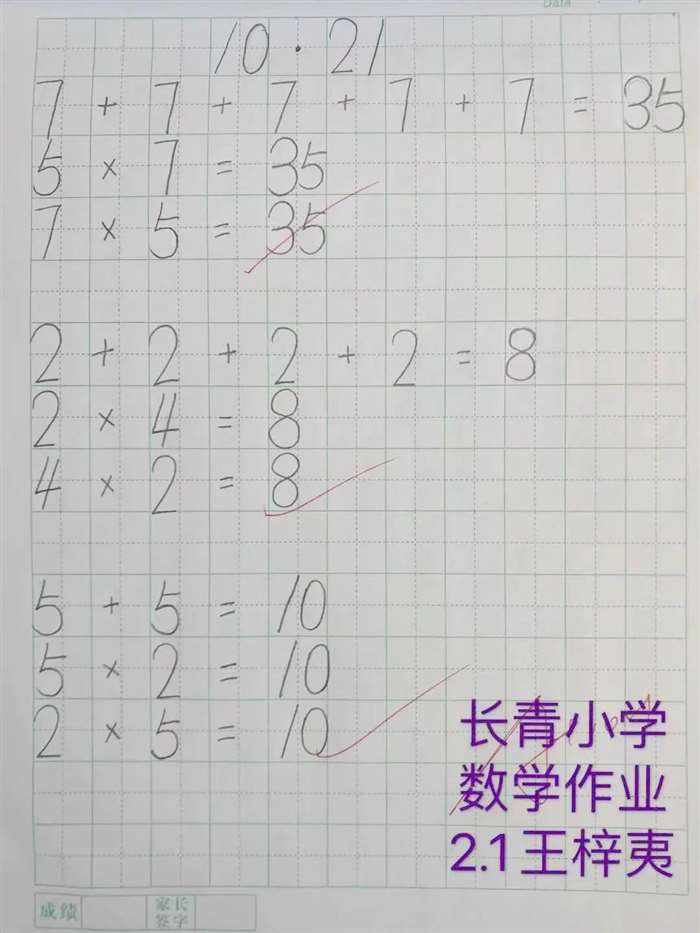 Data
10·21
7 + 7 + 7 + 7 + 7 = 35
5 × 7 = 35
7 × 5 = 35
2 + 2 + 2 + 2 = 8
2 × 4 = 8
4 × 2 = 8
5 + 5 = 10
5 × 2 = 10
2 × 5 = 10
长青小学
数学作业
2.1王梓夷
成绩
家长
签字